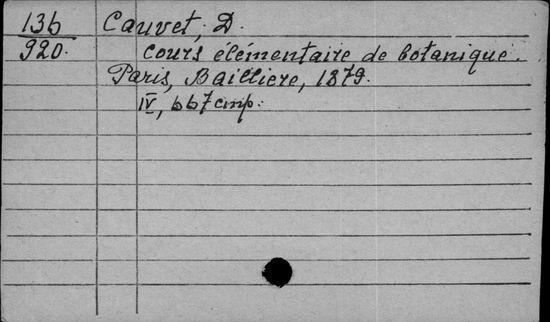 136 Cauvet, D.
920. Cours élémentaire de botanique.
Paris, Bailliere, 1879.
IV, 667 стр.